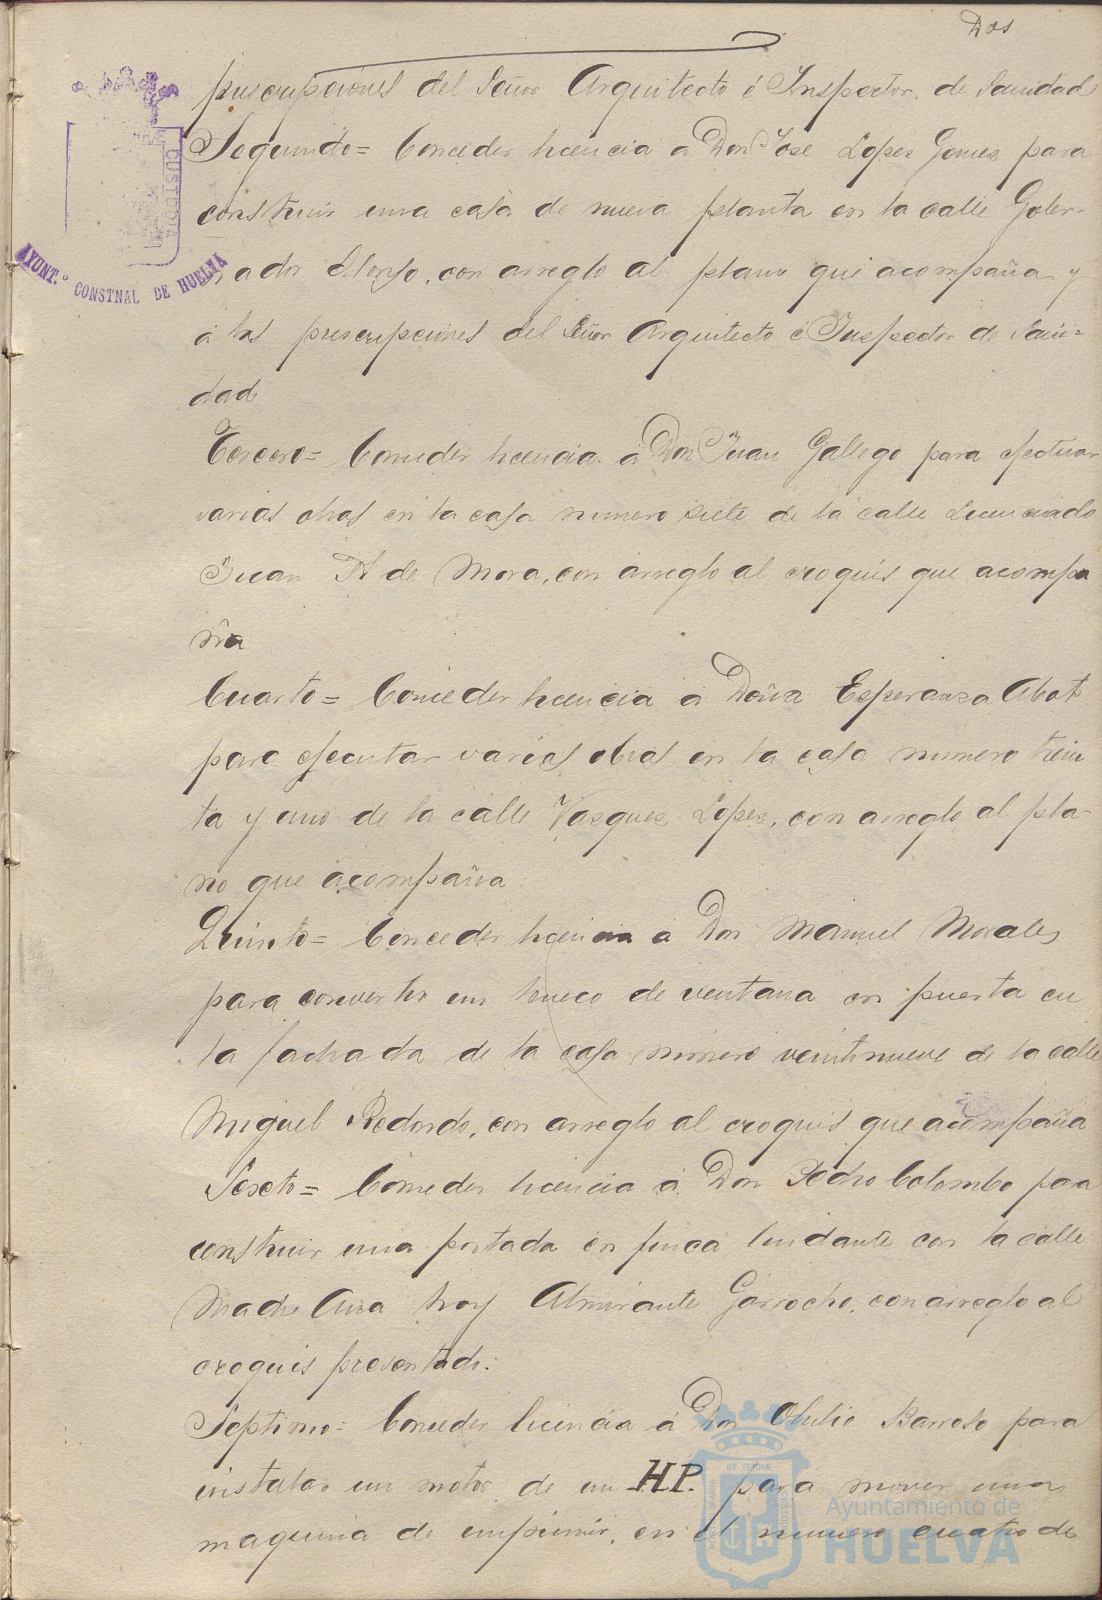 Dos
prescripciones del Señor Arquitecto é Inspector de Sanidad
Segundo= Conceder licencia á Don José Lopez Gomez para
construir una casa de nueva planta en la calle Gober-
nador Alonso, con arreglo al plano que acompaña y
á las prescripciones del Señor Arquitecto é Inspector de Sani-
dad
Tercero= Conceder licencia á Don Juan Gallego para efectuar
varias obras en la casa numero siete de la calle Licenciado
Juan A. de Mora, con arreglo al croquis que acompa
ña
Cuarto= Conceder licencia á Doña Esperanza Abot
para ejecutar varias obras en la casa numero trein
ta y uno de la calle Vazquez Lopez, con arreglo al pla-
no que acompaña
Quinto= Conceder licencia á Don Manuel Morales
para convertir un hueco de ventana en puerta en
la fachada de la casa numero veintinueve de la calle
Miguel Redondo, con arreglo al croquis que acompaña
Sexto= Conceder licencia á Don Pedro Colombo para
construir una portada en finca lindante con la calle
Madre Ana hoy Almirante Garrocho, con arreglo al
croquis presentado.
Septimo= Conceder licencia á Don Obulio Barroso para
instalar un motor de un HP. para mover una
maquina de imprimir, en el numero cuatro de
CUSTODIA
AYUNT.º CONSTNAL DE HUELVA
Ayuntamiento de
HUELVA